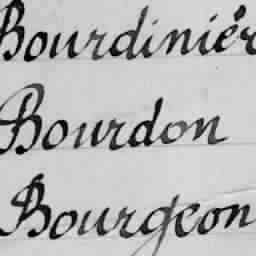 Bourdinièr
Bourdon
Bourgeon